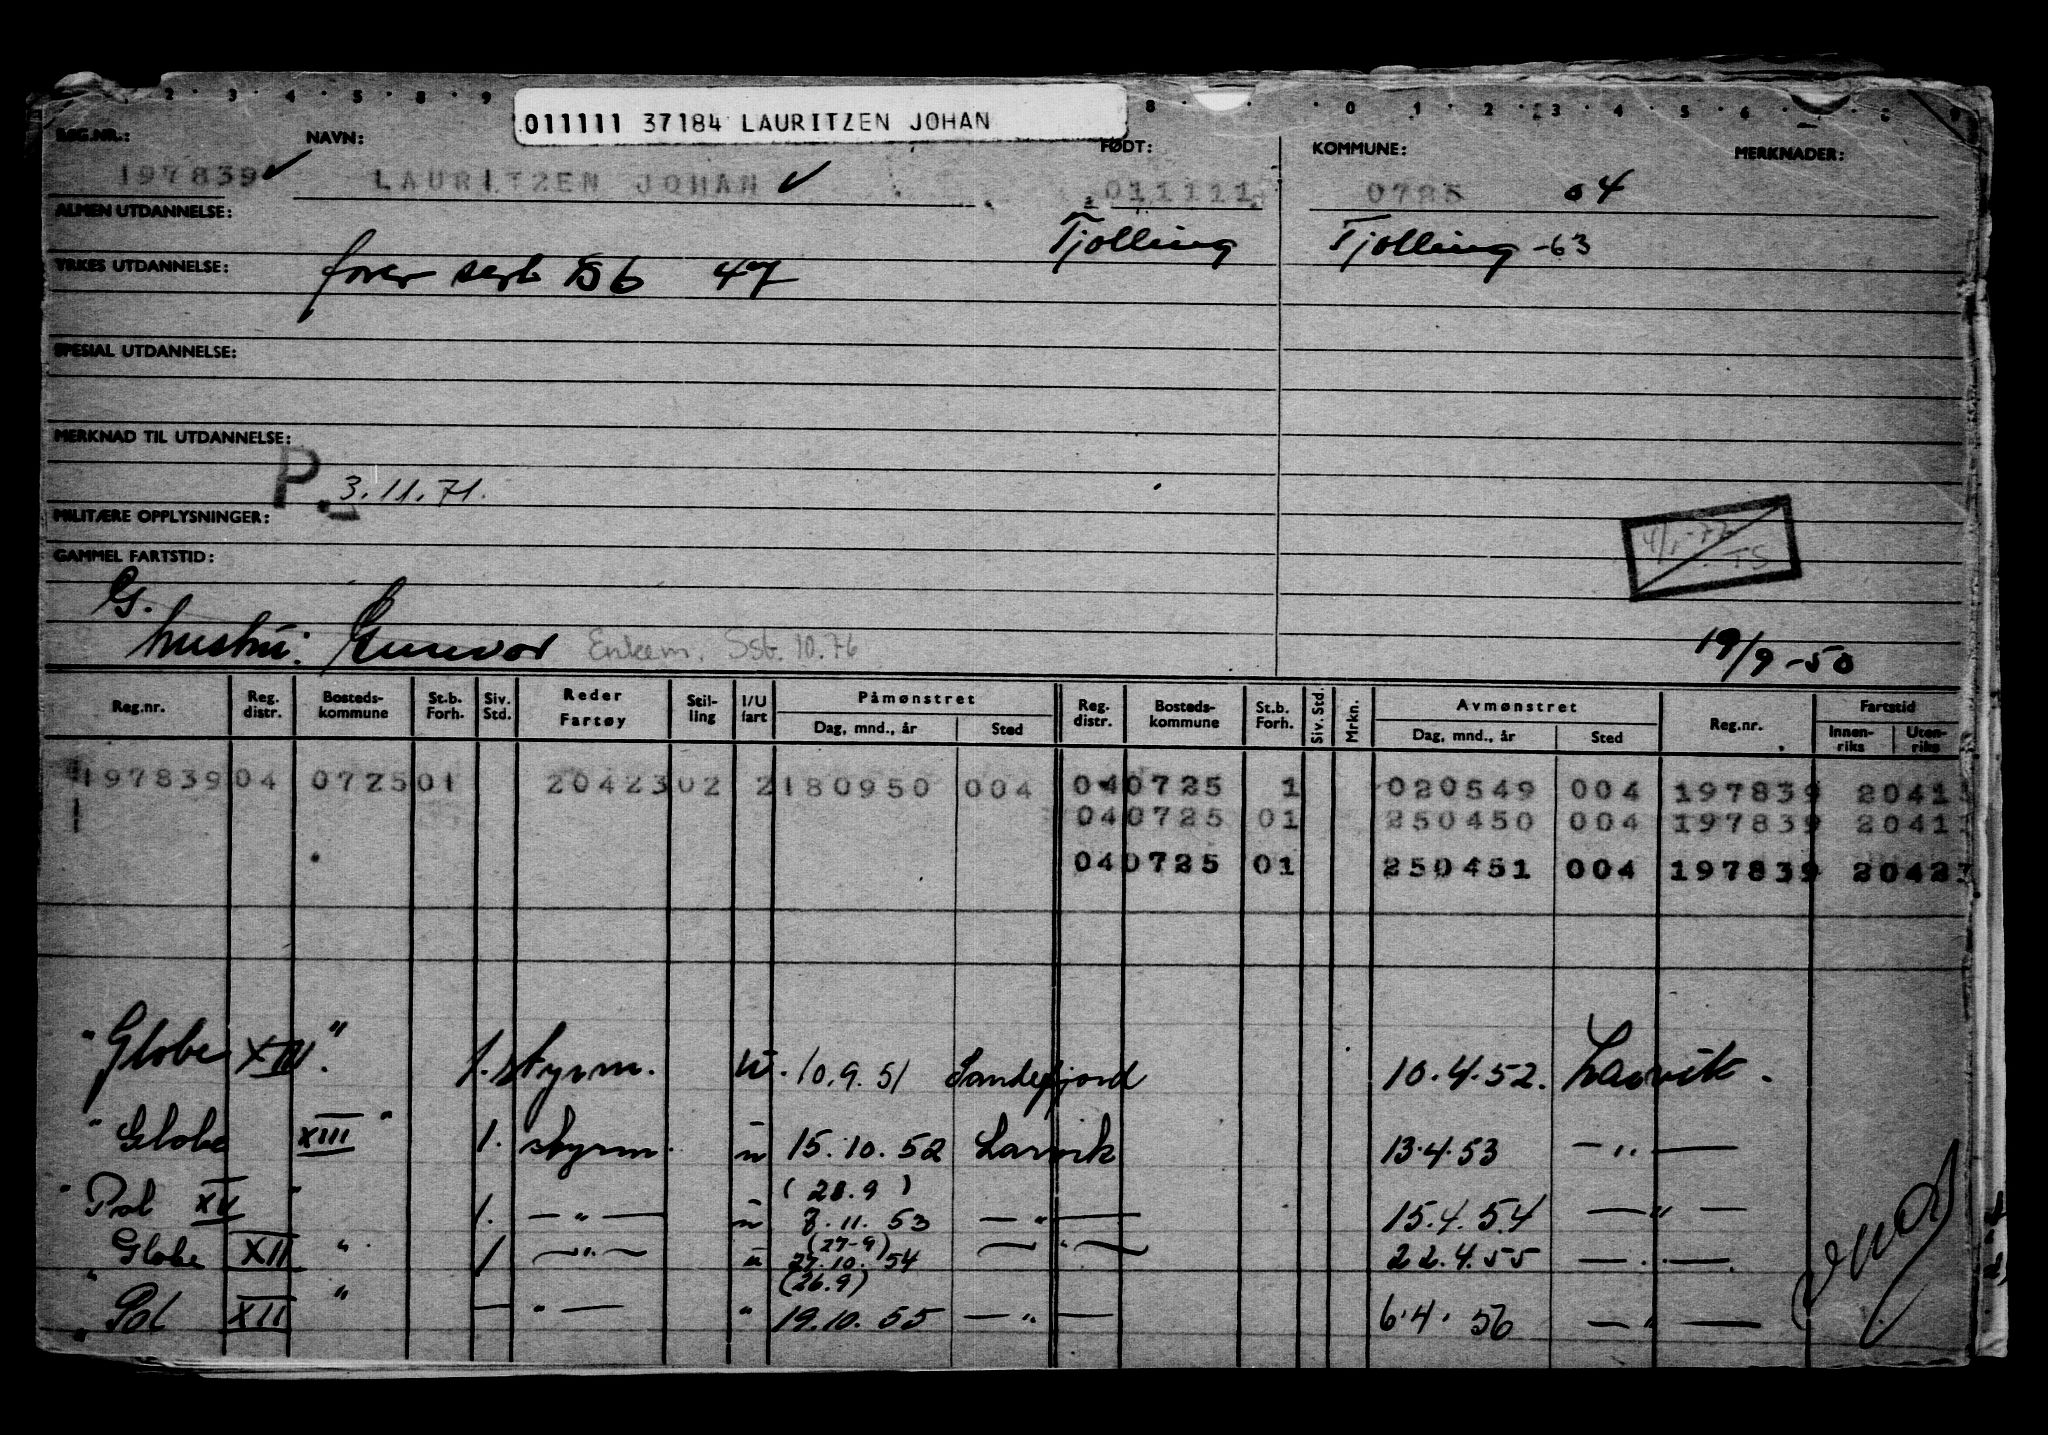 011111 37184 LAURITZEN JOHAN
REG.NR.: NAVN: FØDT: KOMMUNE: MERKNADER:
197839 LAURITZEN JOHAN 011111 0725 04
ALMEN UTDANNELSE: Tjølling Tjølling -63
YRKES UTDANNELSE: 47
SPESIAL UTDANNELSE:
MERKNAD TIL UTDANNELSE:
P. 3.11.71.
MILITÆRE OPPLYSNINGER:
GAMMEL FARTSTID:
G.
hustru: Gunvor Enkem. Sst. 10.76 19/9-50
Reg.nr. Reg. distr. Bosteds-kommune St.b. Forh. Siv. Std. Reder Fartøy Stil-ling I/U fart Påmønstret Dag, mnd., år Sted Reg. distr. Bosteds-kommune St.b. Forh. Siv. Std. Mrkn. Avmønstret Dag, mnd., år Sted Reg.nr. Fartstid Innen-riks Uten-riks
197839 04 0725 01 20423 02 2 180950 004 04 0725 1 020549 004 197839 2041
04 0725 01 250450 004 197839 2041
04 0725 01 250451 004 197839 2042
"Globe ". 1. styrm. u. 10.9.51 Sandefjord 10.4.52. Larvik.
"Globe XIII" 1. styrm. u 15.10.52 Larvik 13.4.53 — " —
(28.9)
"Pol XV" 1. — " — u 8.11.53 — " — 15.4.54 — " —
(27-9)
Globe XII " 1 — " — u 27.10.54 — " — 22.4.55 — " —
(26.9)
"Pol XII " — " — " 19.10.55 — " — 6.4.56 — " —